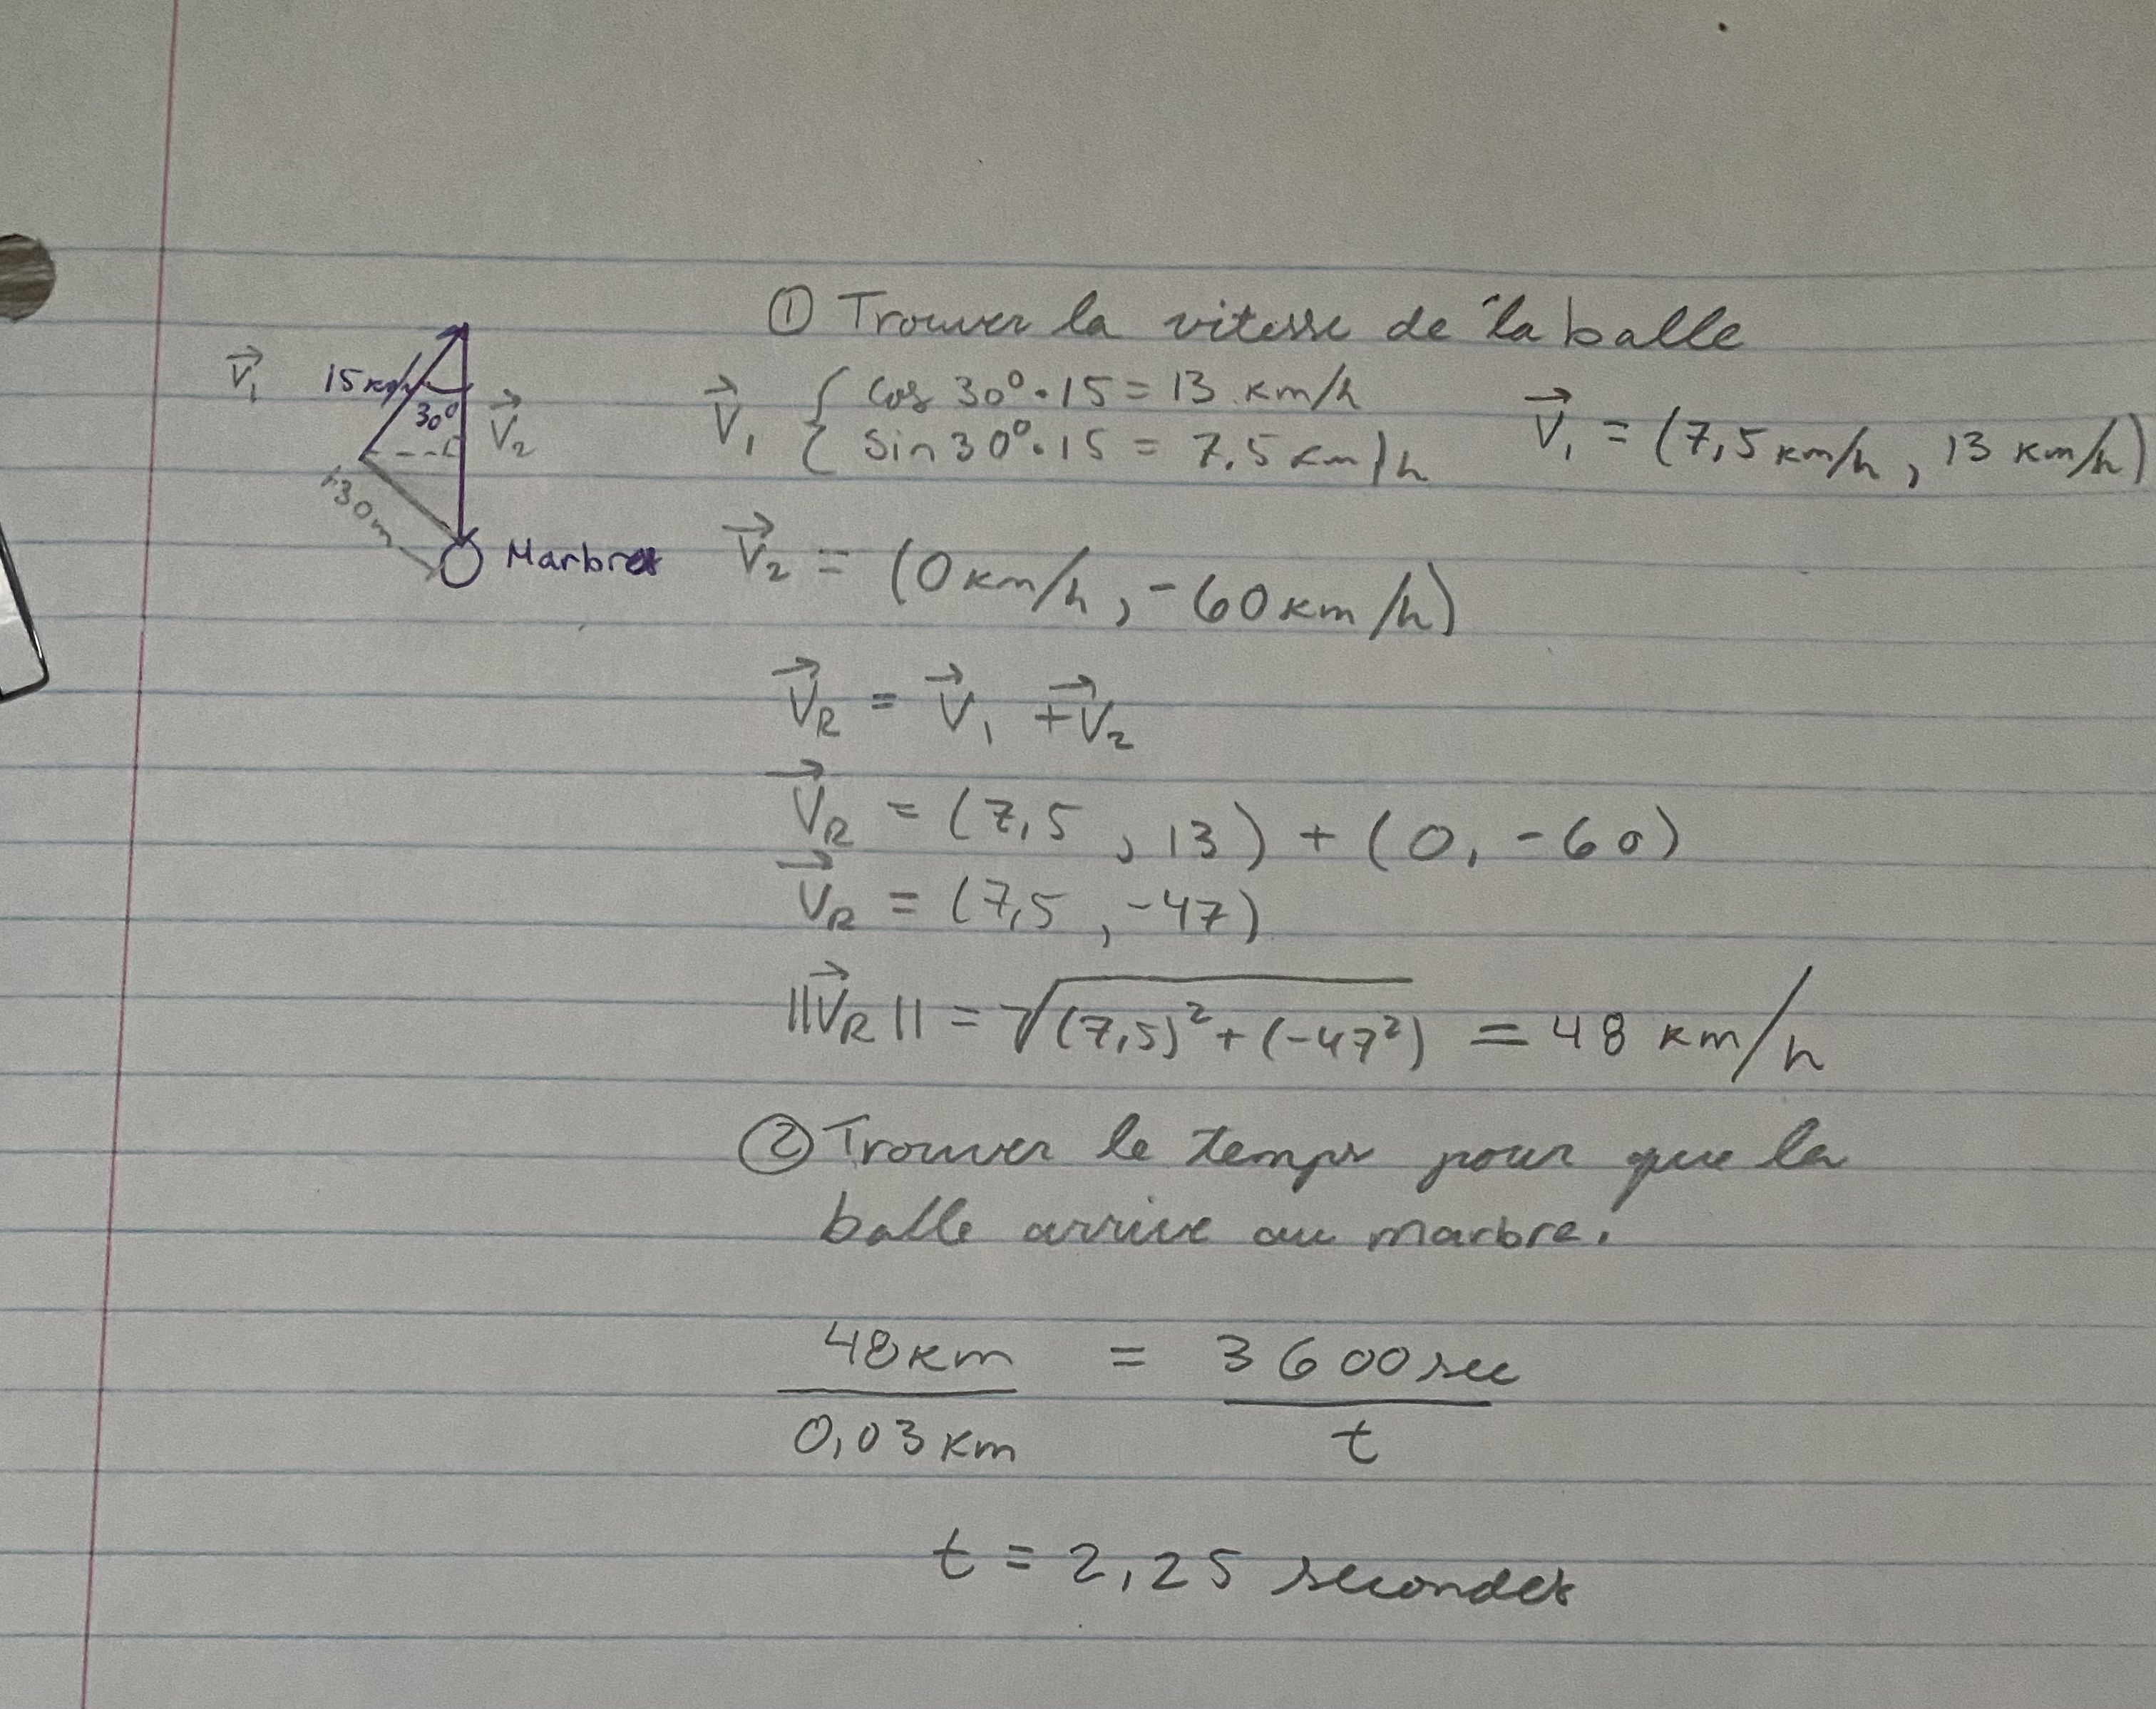 ① Trouver la vitesse de la balle
V⃗₁ 15 km/h
30° V⃗₂
30m
Marbre
V⃗₁ { cos 30° • 15 = 13 km/h
sin 30° • 15 = 7,5 km/h
V⃗₁ = (7,5 km/h, 13 km/h)
V⃗₂ = (0 km/h, -60 km/h)
V⃗R = V⃗₁ + V⃗₂
V⃗R = (7,5 , 13) + (0, -60)
V⃗R = (7,5 , -47)
||V⃗R|| = √((7,5)² + (-47²)) = 48 km/h
② Trouver le temps pour que la
balle arrive au marbre.
48 km / 0,03 km = 3600 sec / t
t = 2,25 secondes